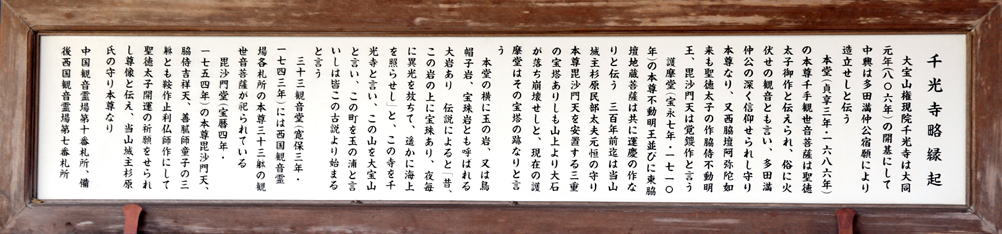 千光寺略縁起
大宝山権現院千光寺は大同
元年(八〇六年)の開基にして
中興は多田満仲公宿願により
造立せしと伝う
本堂(貞享三年・一六八六年)
の本尊千手観世音菩薩は聖徳
太子御作と伝えられ、俗に火
伏せの観音とも言い、多田満
仲公の深く信仰せられし守り
本尊なり、又西脇壇阿弥陀如
来も聖徳太子の作脇侍不動明
王、毘沙門天は覚鑁作と言う
護摩堂(宝永七年・一七一〇
年)の本尊不動明王並びに東脇
壇地蔵菩薩は共に運慶の作な
りと伝う 三百年前迄は当山
城主杉原民部太夫元恒の守り
本尊毘沙門天を安置する三重
の宝塔ありしも山上より大石
が落ち崩壊せしと、現在の護
摩堂はその宝塔の跡なりと言
う
本堂の横に玉の岩、又は烏
帽子岩、宝珠岩とも呼ばれる
大岩あり 伝説によると「昔、
この岩の上に宝珠あり、夜毎
に異光を放ちて、遥かに海上
を照らせし」と、この寺を千
光寺と言い、この山を大宝山
と言い、この町を玉の浦と言
いしは皆この古説より始まる
と言う
三十三観音堂(寛保三年・
一七四三年)には西国観音霊
場各札所の本尊三十三躰の観
世音菩薩が祀られている
毘沙門堂(宝暦四年・
一七五四年)の本尊毘沙門天、
脇侍吉祥天、善膩師童子の三
躰とも鞍作止利仏師作にして
聖徳太子開運の祈願をせられ
し尊像と伝え、当山城主杉原
氏の守り本尊なり
中国観音霊場第十番札所、備
後西国観音霊場第七番札所